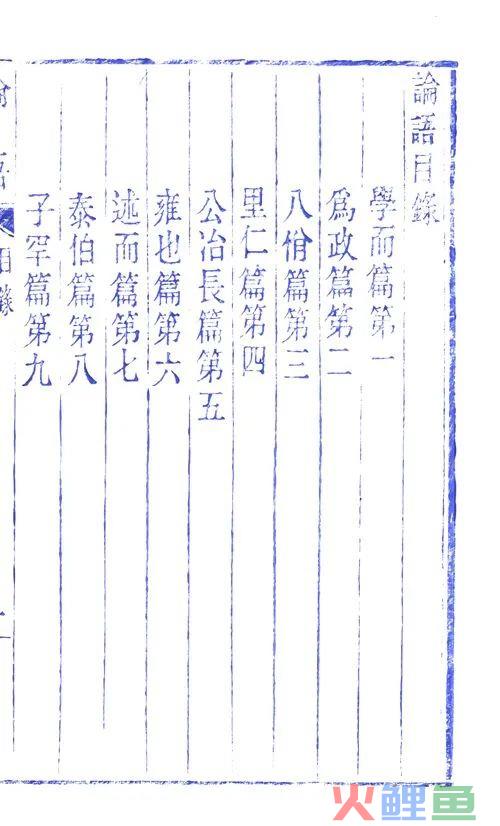 論語目錄
學而篇第一
爲政篇第二
八佾篇第三
里仁篇第四
公冶長篇第五
雍也篇第六
述而篇第七
泰伯篇第八
子罕篇第九
目錄
一
火鲤鱼